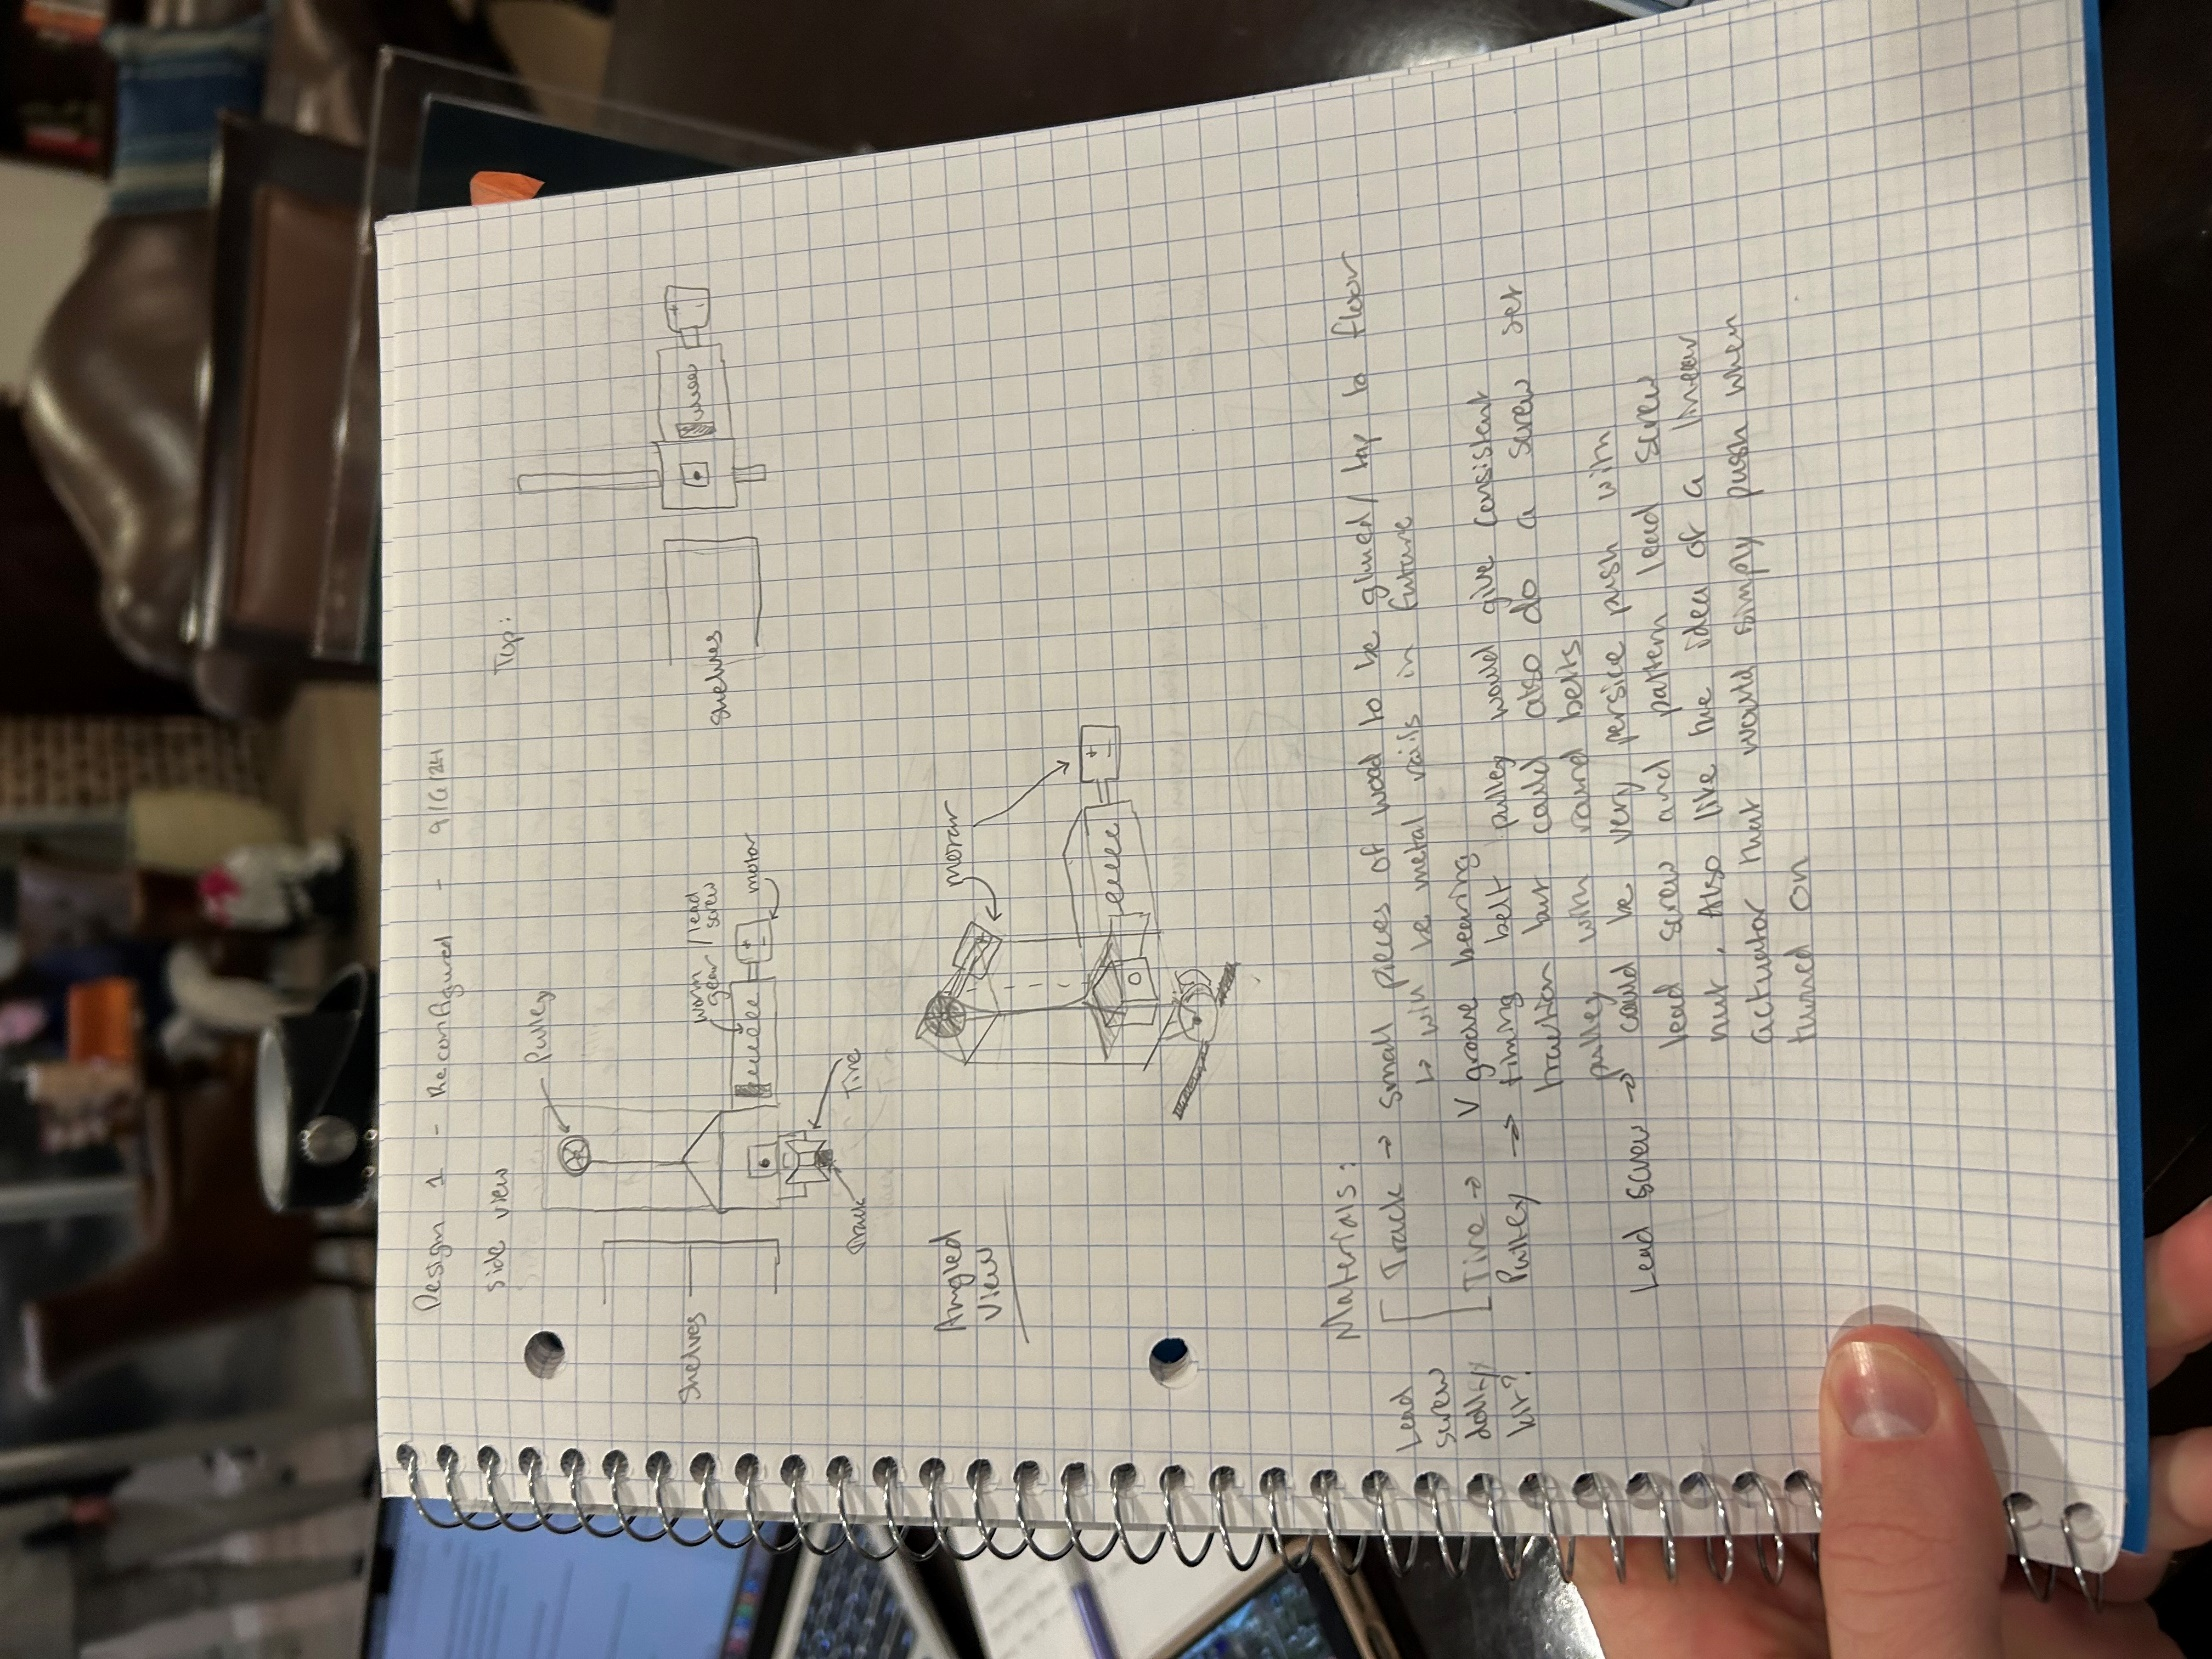 Design 1 - Reconfigured - 9/6/24
side view
Top:
Pulley
worm / lead
gear screw
motor
Shelves
Tire
Track
shelves
Angled
view
motor
Materials:
Lead
screw
dolly
kit?
Track → small pieces of wood to be glued/ lay to floor
↳ will be metal rails in future
Tire → V groove bearing
Pulley → timing belt pulley would give consistent
traction but could also do a screw set
pulley with round belts
Lead screw → could be very persice push with
lead screw and pattern lead screw
nut. Also like the idea of a linear
actuator that would simply push when
turned on